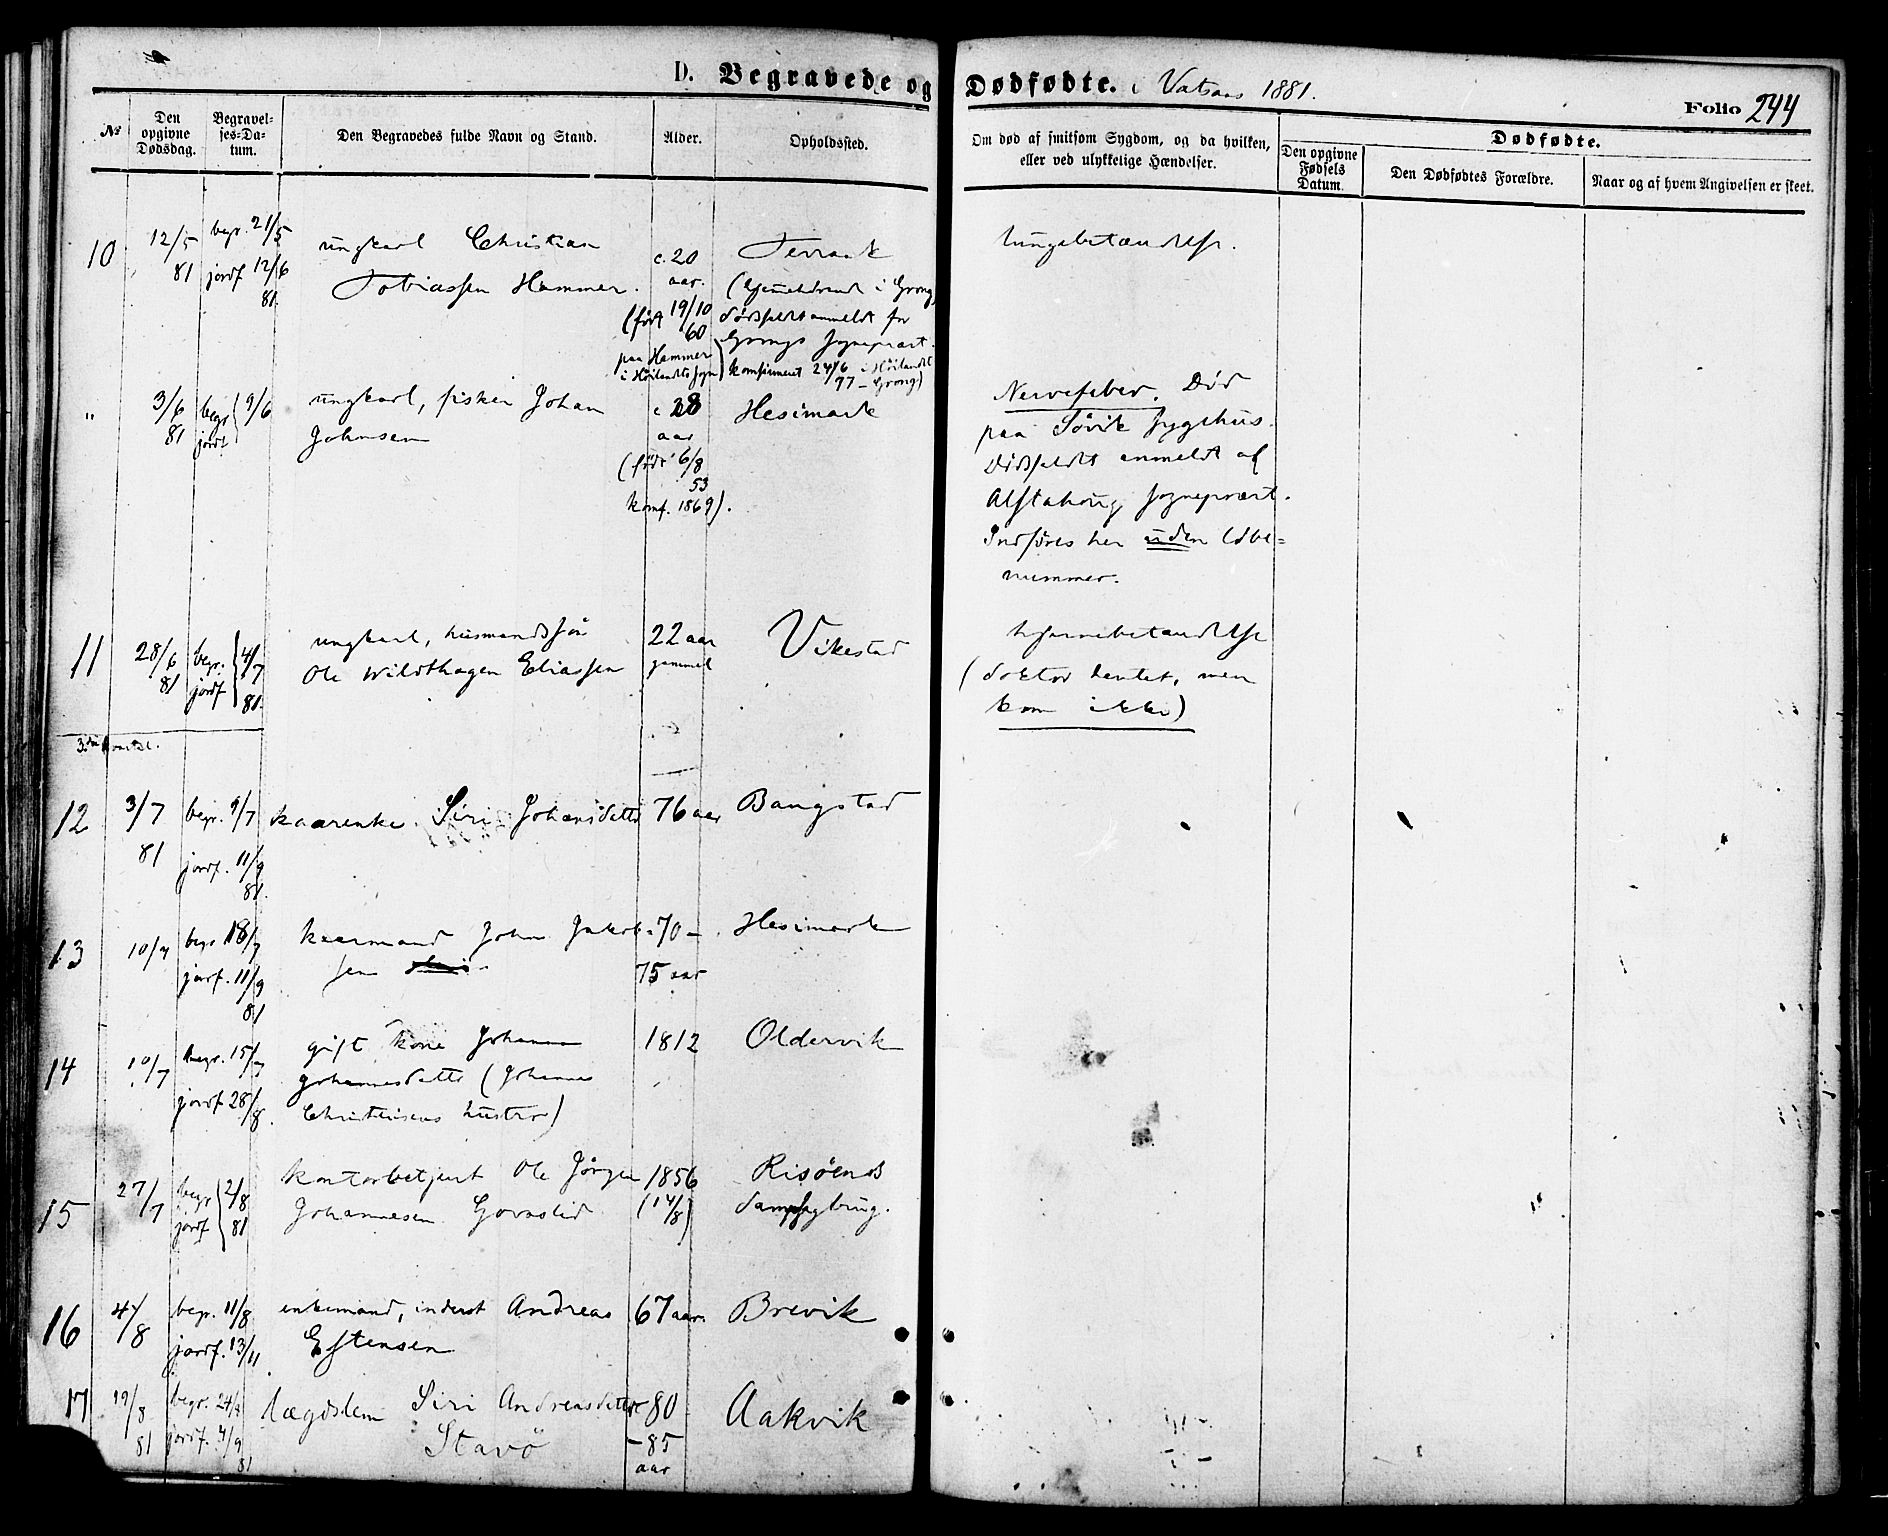 D. Begravede og Dødfødte. i Vatsaas 1881.
Folio 244
№
Den opgivne Dødsdag.
Begravelses-Datum.
Den Begravedes fulde Navn og Stand.
Alder.
Opholdssted.
Om død af smitsom Sygdom, og da hvilken,
eller ved ulykkelige Hændelser.
Dødfødte.
Den opgivne Fødsels Datum.
Den Dødfødtes Forældre.
Naar og af hvem Angivelsen er skeet.
10 12/5 81 begr. 21/5 jordf. 12/6 81.
ungkarl Christian
Tobiassen Hammer.
c. 20 aar.
(født 19/10 60
paa Hammer
i Höilandets sogn)
Terraak
(hjemmehørende i Grong,
dödsfaldet anmeldt for
Grongs sognepræst.
konfirmeret 24/6 77 i Höilandet
- Grong)
lungebetændelse.
" 3/6 81 begr. jordf. 9/6
ungkarl, fisker Johan
Johnsen
c. 28
aar
(född 6/8
53
konf. 1869).
Hesimark
Nervefeber. Död
paa Søvik sygehus.
Dödsfaldet anmeldt af
Alstahoug sognepræst.
Indföres her uden löbe=
nummer.
11 28/6 81 begr. jordf. 4/7 81.
ungkarl, husmandssøn
Ole Wildthagen Eliassen
22 aar
gammel
Vikestad
hjernebetændelse
(doktor hentet, men
kom ikke)
12 3/7 81 begr. 9/7 jordf. 11/9 81.
kaarenke Siri Johansdatter
76 aar
Bangstad
13 10/7 begr. 18/7 jordf. 11/9 81
kaarmand John Jakob-
sen
70 -
75 aar
Hesimark
14 10/7 begr. 15/7 jordf. 28/8.
gift kone Johanna
Johannesdatter (Johannes
Christensens hustro)
1812
Oldervik
15 27/7 begr. jordf. 2/8 81
kontorbetjent Ole Jörgen
Johannesen
1856
(14/8)
Risöens
dampsagbrug.
16 4/8 begr. 11/8 jordf. 13/11
enkemand, inderst Andreas
Estensen
67 aar.
Brevik
17 19/8 81 begr. 24/8 jordf. 4/9 81
lægdslem Siri Andreasdatter
Stavö
80
- 85
aar
Aakvik